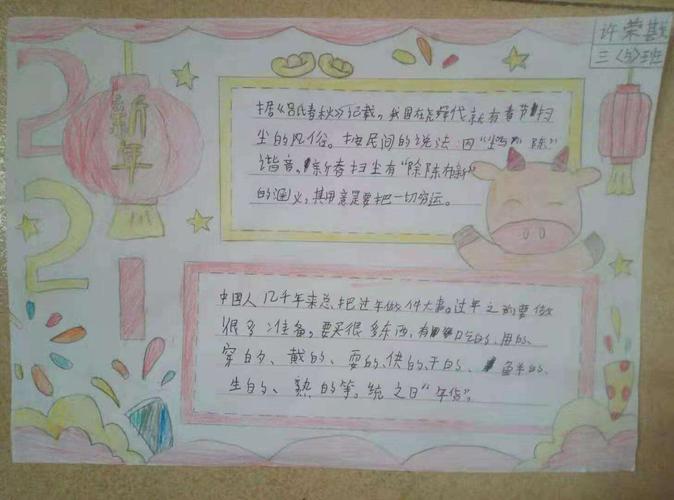 许荣
三（5）班
2021
新年
据《吕氏春秋》记载，我国在尧舜代就有春节扫
尘的风俗。按民间的说法：因“尘”与“陈”
谐音、新春扫尘有“除陈布新”
的涵义，其用意是要把一切穷运。
中国人几千年来总把过年做件大事。过年之前要做
很多准备，要买很多东西，有吃的、用的、
穿的、戴的、耍的、供的、干的、鱼羊的、
生的、熟的等，统之曰“年货”。